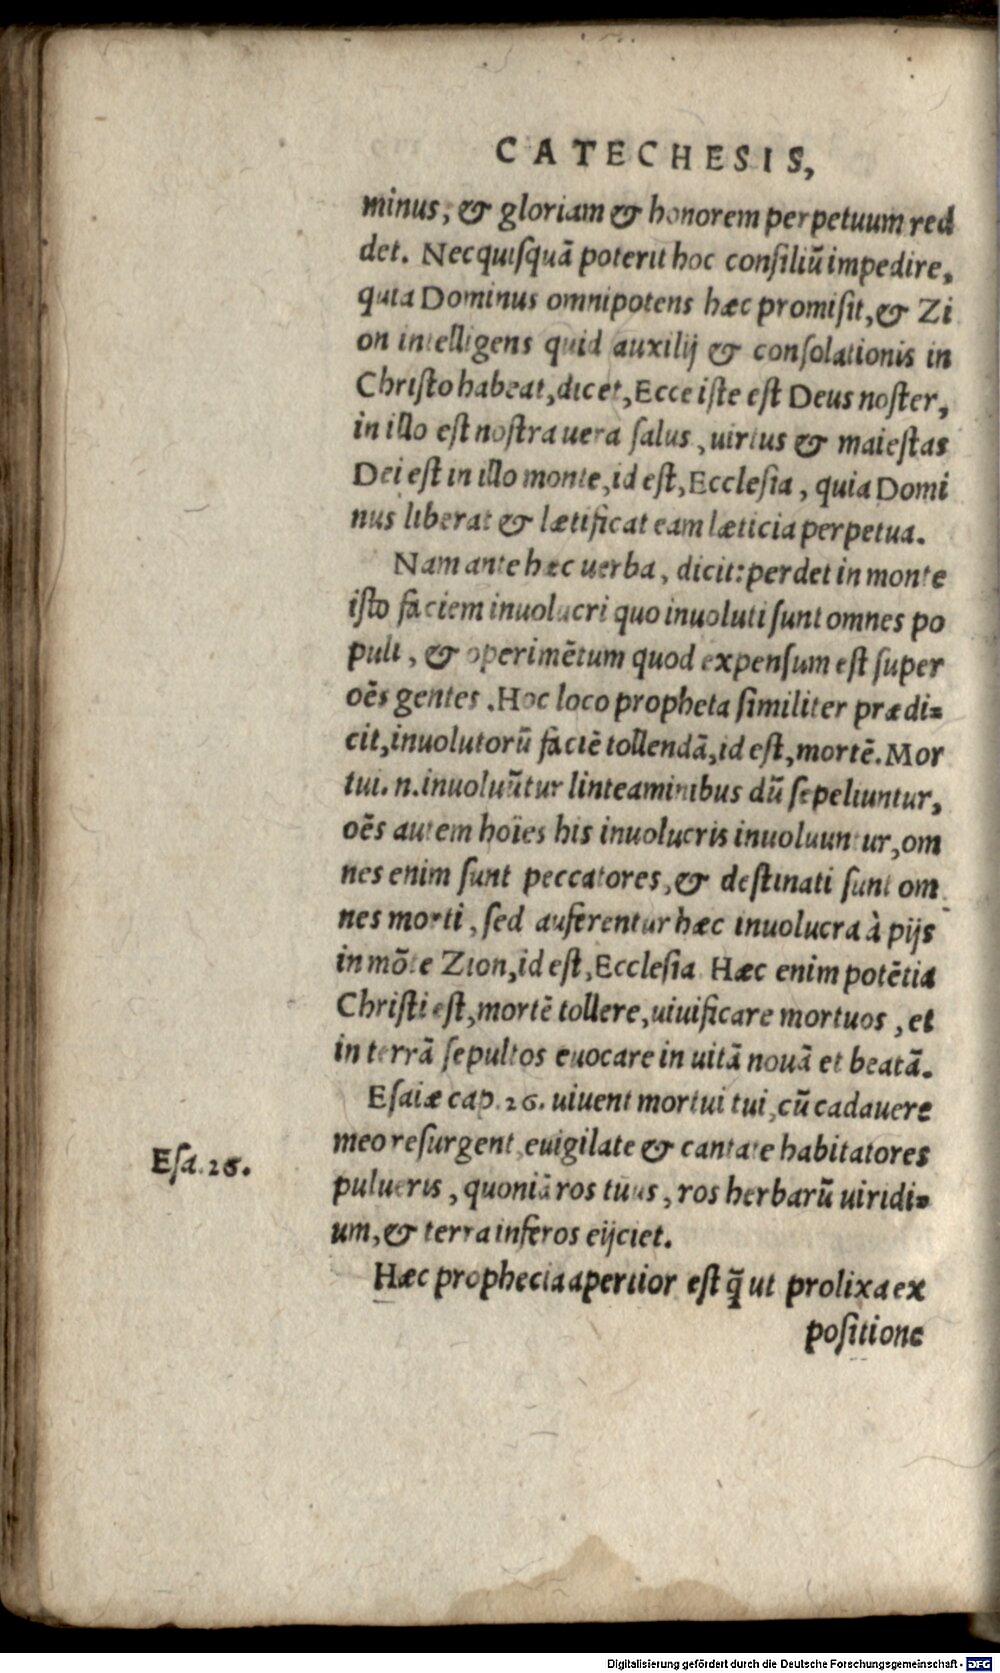 CATECHESIS,
minus, & gloriam & honorem perpetuum red
det. Nec quiſquā poterit hoc conſiliū impedire,
quia Dominus omnipotens hæc promiſit, & Zi
on intelligens quid auxilij & conſolationis in
Chriſto habeat, dicet, Ecce iſte eſt Deus noſter,
in illo eſt noſtra uera ſalus, uirtus & maieſtas
Dei eſt in illo monte, id eſt, Eccleſia, quia Domi
nus liberat & lætificat eam læticia perpetua.
Nam ante hæc uerba, dicit: perdet in monte
iſto faciem inuolucri quo inuoluti ſunt omnes po
puli, & operimētum quod expenſum eſt ſuper
oēs gentes. Hoc loco propheta ſimiliter prædi=
cit, inuolutorū faciē tollendā, id eſt, mortē. Mor
tui. n. inuoluūtur linteaminibus dū ſepeliuntur,
oēs autem hoīes his inuolucris inuoluuntur, om
nes enim ſunt peccatores, & deſtinati ſunt om
nes morti, ſed auferentur hæc inuolucra à pijs
in mōte Zion, id eſt, Eccleſia Hæc enim potētia
Chriſti eſt, mortē tollere, uiuificare mortuos, et
in terrā ſepultos euocare in uitā nouā et beatā.
Eſaiæ cap. 26. uiuent mortui tui, cū cadauere
meo reſurgent, euigilate & cantate habitatores
Eſa. 26.
pulueris, quoniā ros tuus, ros herbarū uiridi=
um, & terra inferos eijciet.
Hæc prophecia apertior eſt q̄ ut prolixa ex
poſitione
Digitalisierung gefördert durch die Deutsche Forschungsgemeinschaft - DFG